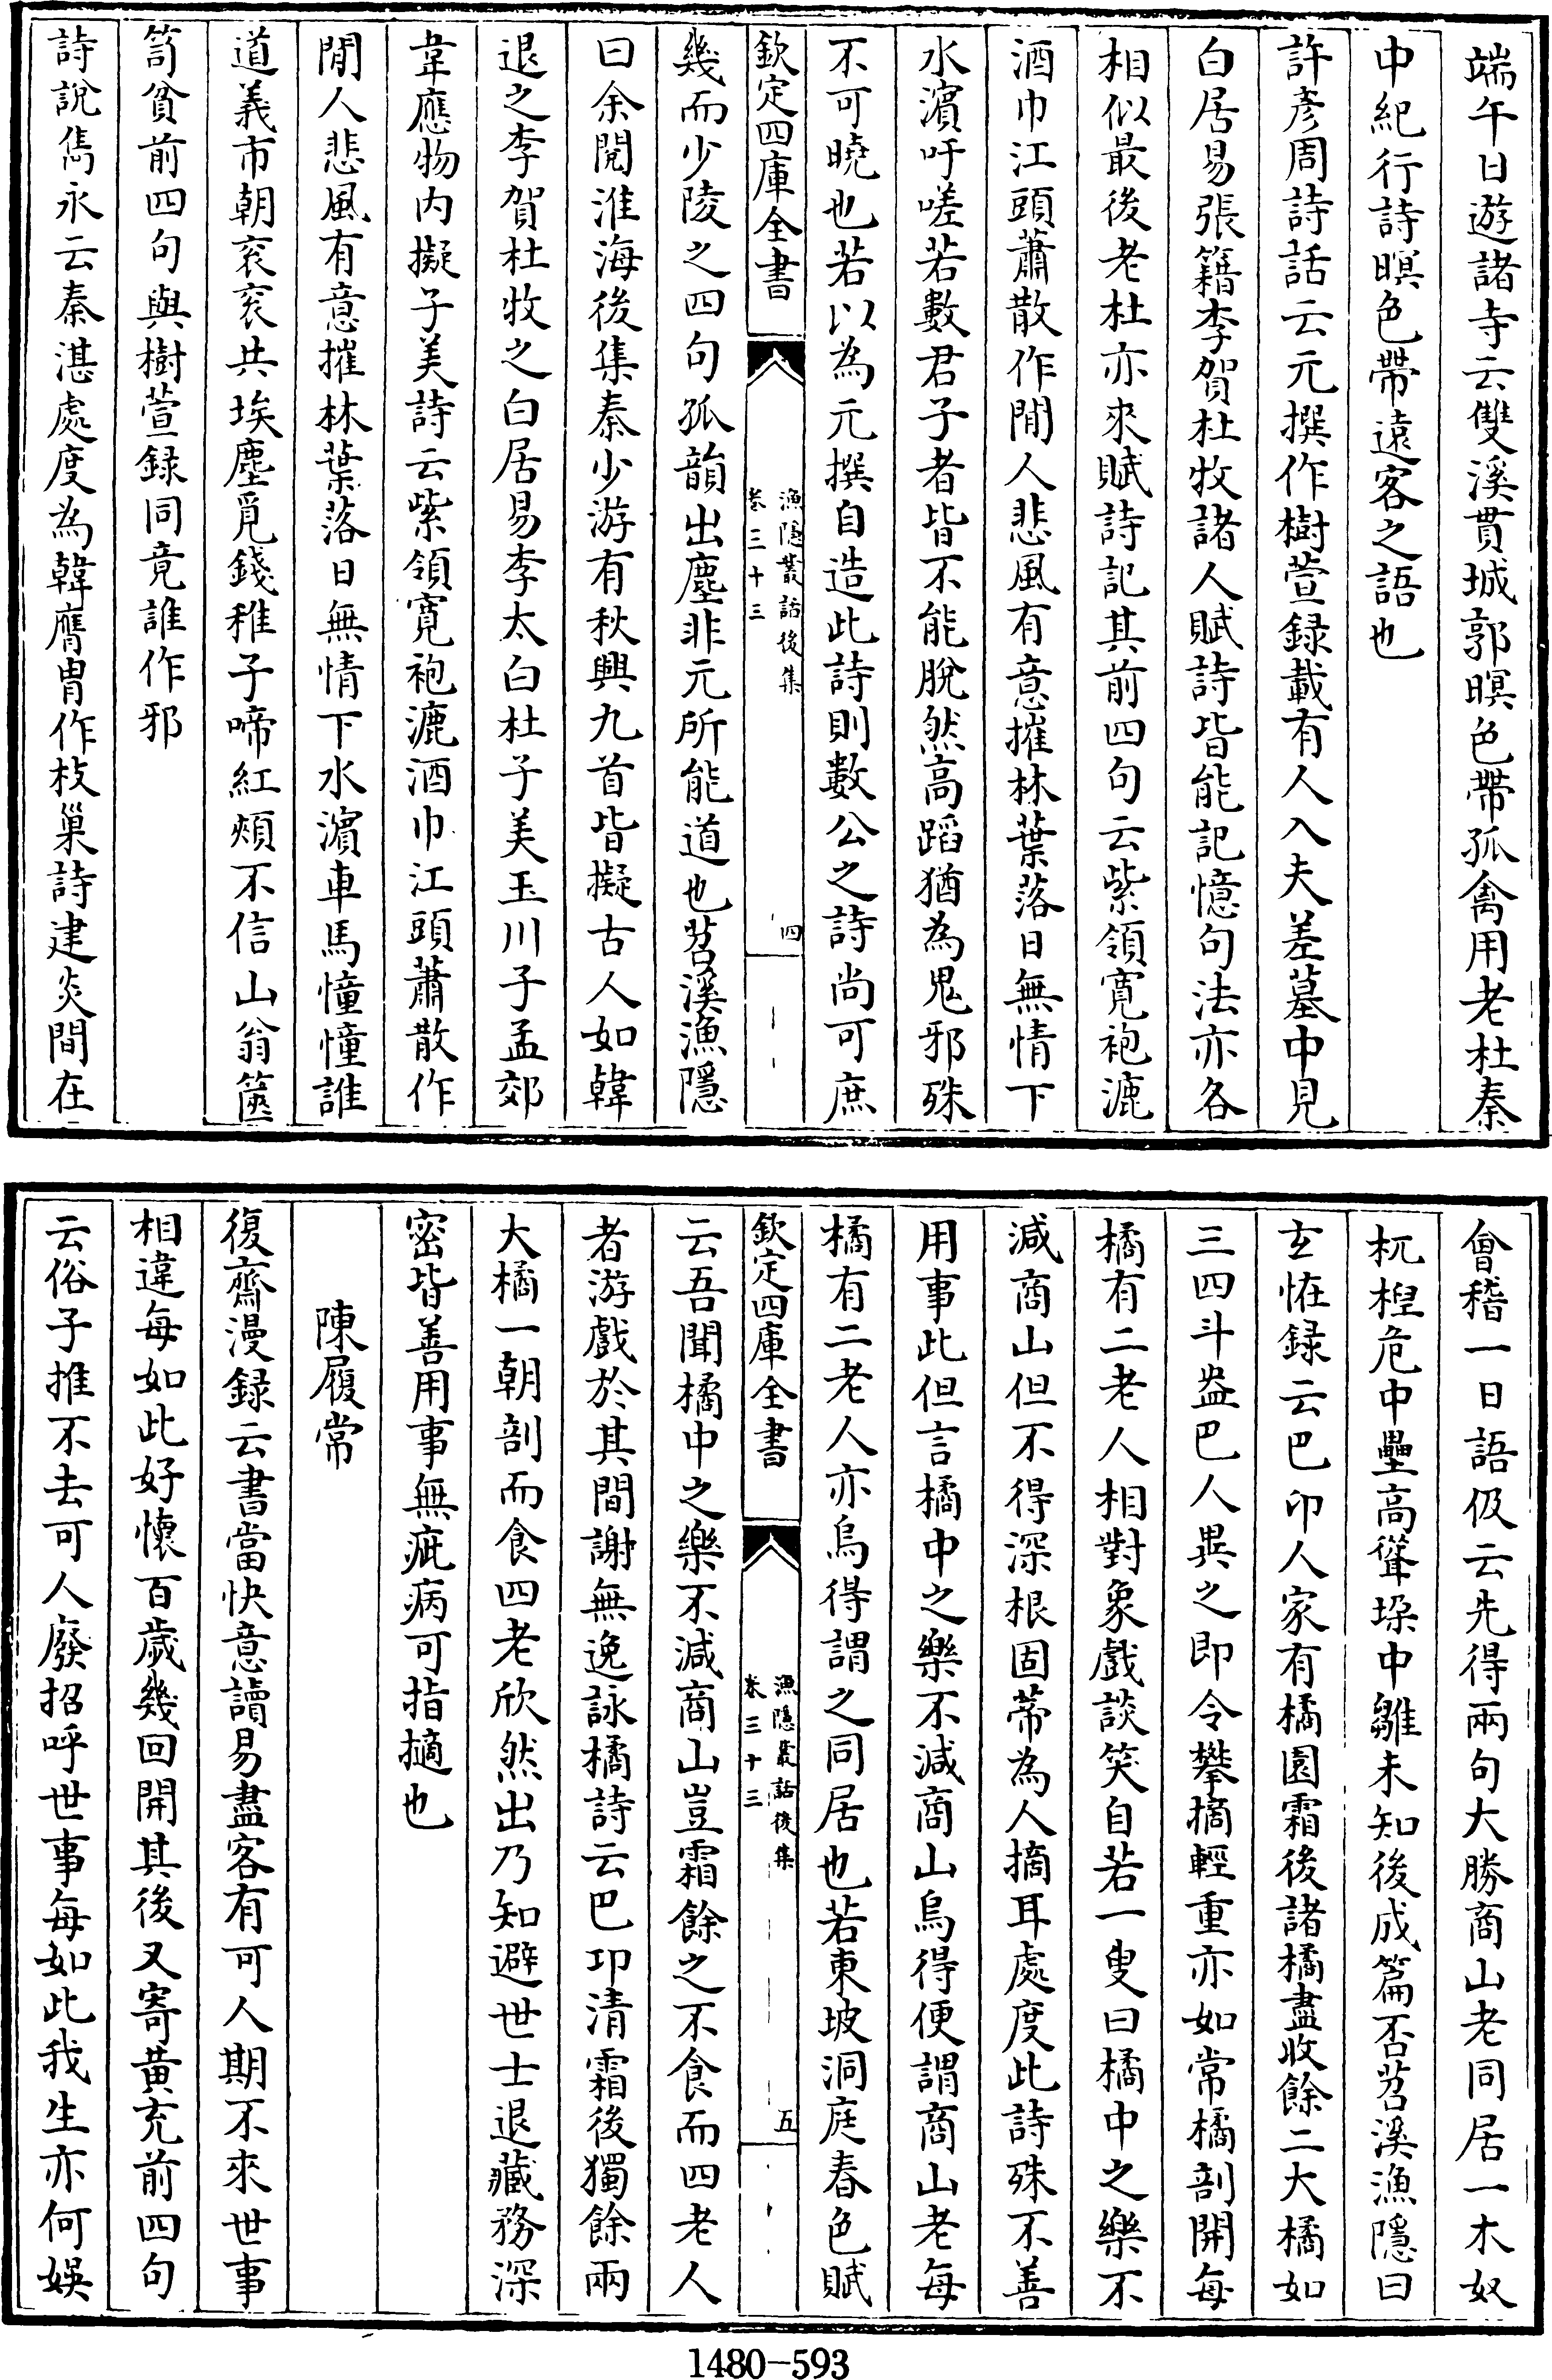 端午日遊諸寺云雙溪貫城郭暝色帶孤禽用老杜秦
中紀行詩暝色帶遠客之語也
許彥周詩話云元撰作樹萱録載有人入夫差墓中見
白居易張籍李賀杜牧諸人賦詩皆能記憶句法亦各
相似最後老杜亦來賦詩記其前四句云紫領寬袍漉
酒巾江頭蕭散作閒人悲風有意摧林葉落日無情下
水濵吁嗟若數君子者皆不能脫然高蹈猶為鬼邪殊
不可曉也若以為元撰自造此詩則數公之詩尚可庶
欽定四庫全書
漁隱叢話後集
卷三十三
四
幾而少陵之四句孤韻出塵非元所能道也苕溪漁隱
曰余閱淮海後集秦少游有秋興九首皆擬古人如韓
退之李賀杜牧之白居易李太白杜子美玉川子孟郊
韋應物内擬子美詩云紫領寬袍漉酒巾江頭蕭散作
閒人悲風有意摧林葉落日無情下水濵車馬憧憧誰
道義市朝衮衮共埃塵覓錢稚子啼紅頰不信山翁篋
笥貧前四句與樹萱録同竟誰作邪
詩說雋永云秦湛處度為韓膺胄作枝巢詩建炎間在
會稽一日語伋云先得兩句大勝商山老同居一木奴
杌棿危中壘高聳垛中雛未知後成篇否苕溪漁隱曰
玄恠録云巴卭人家有橘園霜後諸橘盡收餘二大橘如
三四斗盎巴人異之即令攀摘輕重亦如常橘剖開每
橘有二老人相對象戲談笑自若一叟曰橘中之樂不
減商山但不得深根固蒂為人摘耳處度此詩殊不善
用事此但言橘中之樂不減商山烏得便謂商山老每
橘有二老人亦烏得謂之同居也若東坡洞庭春色賦
欽定四庫全書
漁隱叢話後集
卷三十三
五
云吾聞橘中之樂不減商山豈霜餘之不食而四老人
者游戲於其間謝無逸詠橘詩云巴卭清霜後獨餘兩
大橘一朝剖而食四老欣然出乃知避世士退藏務深
密皆善用事無疵病可指擿也
陳履常
復齋漫録云書當快意讀易盡客有可人期不來世事
相違每如此好懷百歲幾回開其後又寄黄充前四句
云俗子推不去可人廢招呼世事每如此我生亦何娛
1480-593